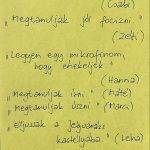 (Csabi)
"Megtanuljak jól focizni"
(Zétí)
"Legyen egy mikrofonom,
hogy énekeljek"
(Hanna)
"Megtanuljak írni" (Máté)
"Megtanuljak úszni" (Mara)
"Eljussak a Jégvarázs
kastélyába." (Léna)